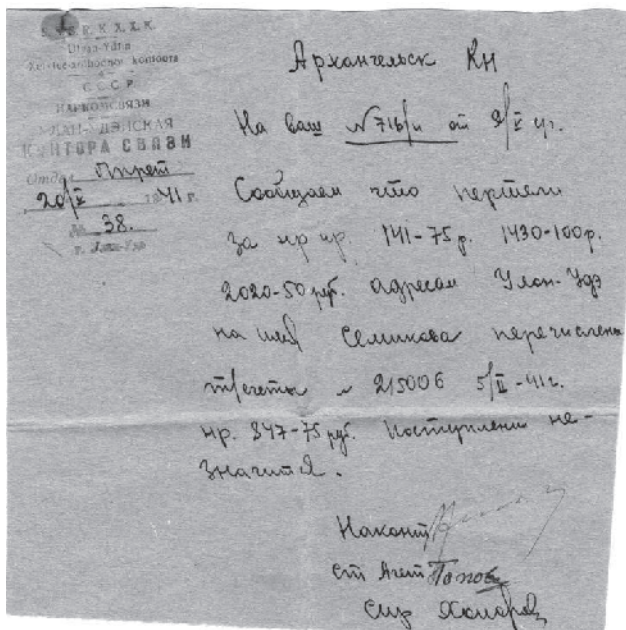 S.S.S.R. X.X.X.
Ulaan-Yden
kontoora
С С С Р
НАРКОМСВЯЗИ
УЛАН-УДЭНСКАЯ
КОНТОРА СВЯЗИ
Отдел
20/V 1941 г.
№ 38.
г. Улан-Удэ
Архангельск КН
На ваш №716/и от 9/V с/г.
Сообщаем что
за нр нр. 141-75 р. 1430-100 р.
2020-50 руб. адресам Улан-Удэ
на имя Семикова перечислены
№ 215006 5/II-41 г.
нр. 847-75 руб. поступлении не-
значится.
Наконт
Ст Агент Попов